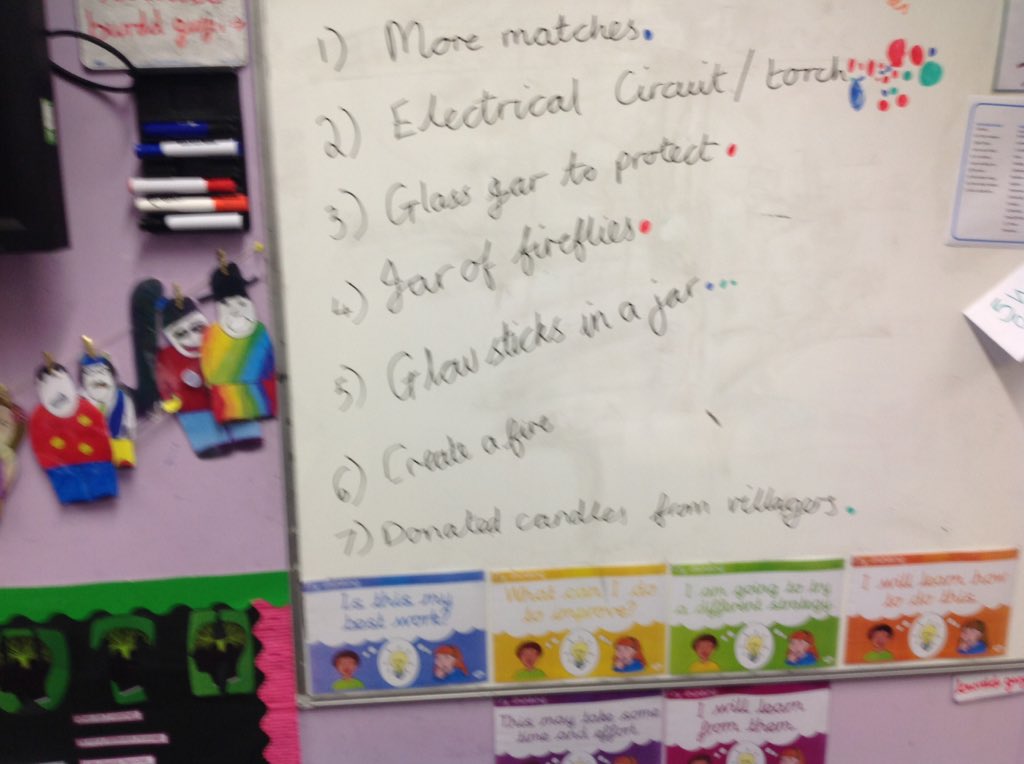 1) More matches.
2) Electrical Circuit/torch
3) Glass jar to protect.
4) Jar of fireflies.
5) Glow sticks in a jar...
6) Create a fire
7) Donated candles from villagers.
Is this my
best work?
What can I do
to improve?
I am going to try
a different strategy
I will learn how
to do this
This may take some
time and effort
I will learn
from them